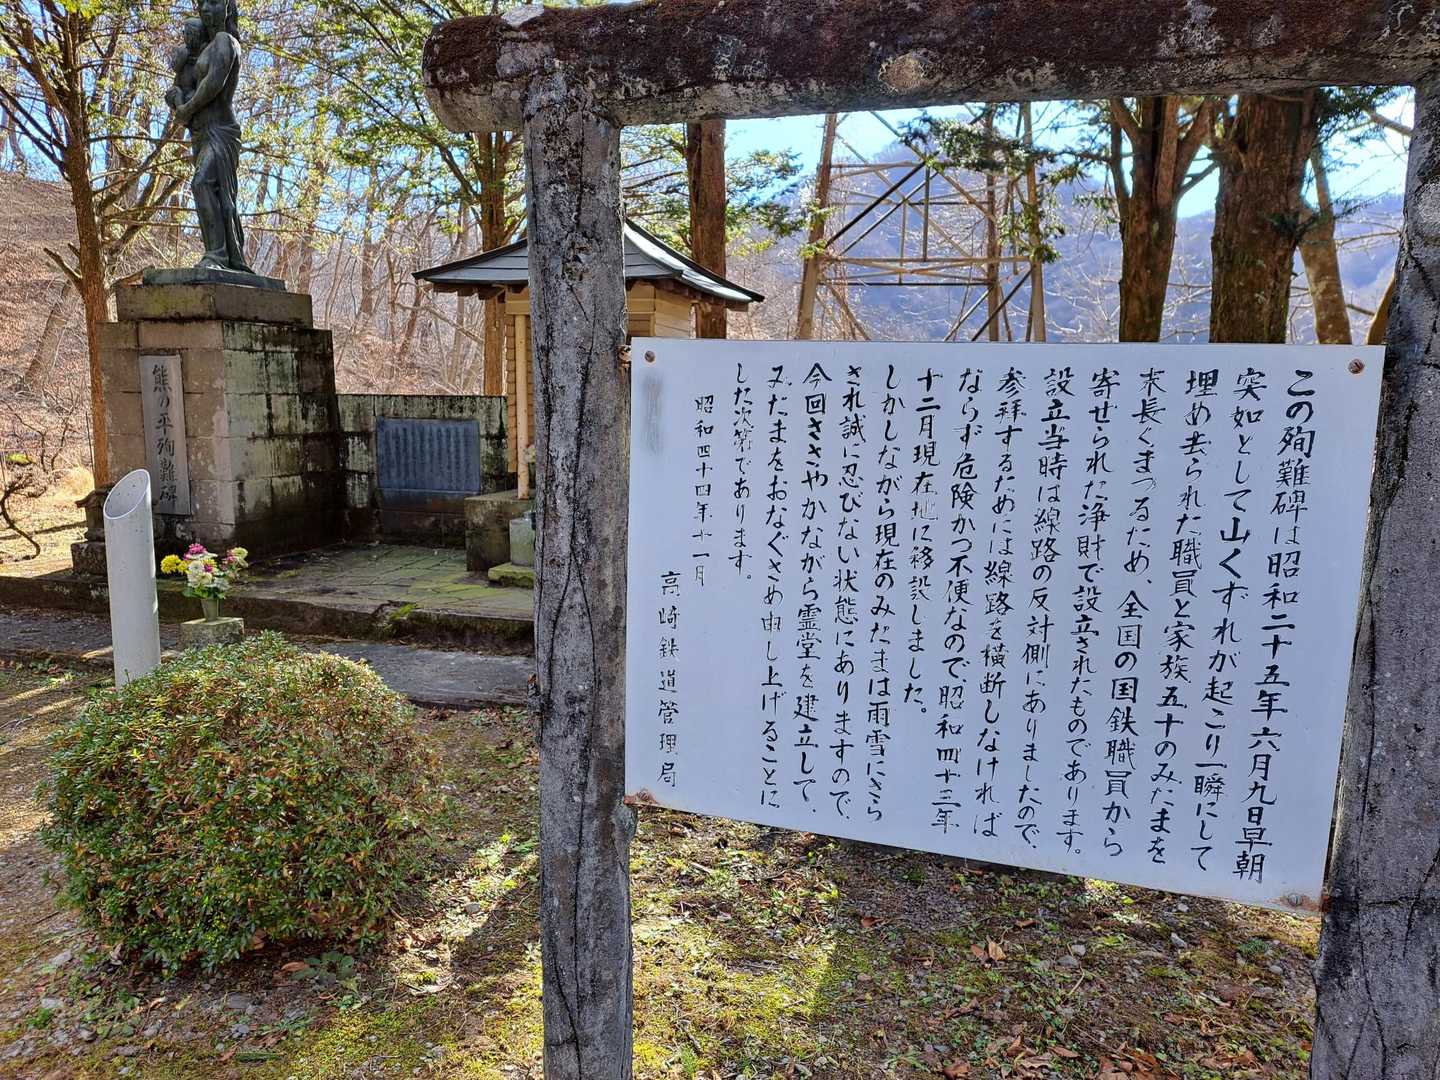 この殉難碑は昭和二十五年六月九日早朝
突如として山くずれが起こり一瞬にして
埋め去られた職員と家族五十のみたまを
末長くまつるため、全国の国鉄職員から
寄せられた浄財で設立されたものであります。
設立当時は線路の反対側にありましたので、
参拝するためには線路を横断しなければ
ならず危険かつ不便なので、昭和四十三年
十二月現在地に移設しました。
しかしながら現在のみたまは雨雪にさら
され誠に忍びない状態にありますので、
今回ささやかながら霊堂を建立して、
みたまをおなぐさめ申し上げることに
した次第であります。
昭和四十四年十一月
高崎鉄道管理局
熊の平殉難碑